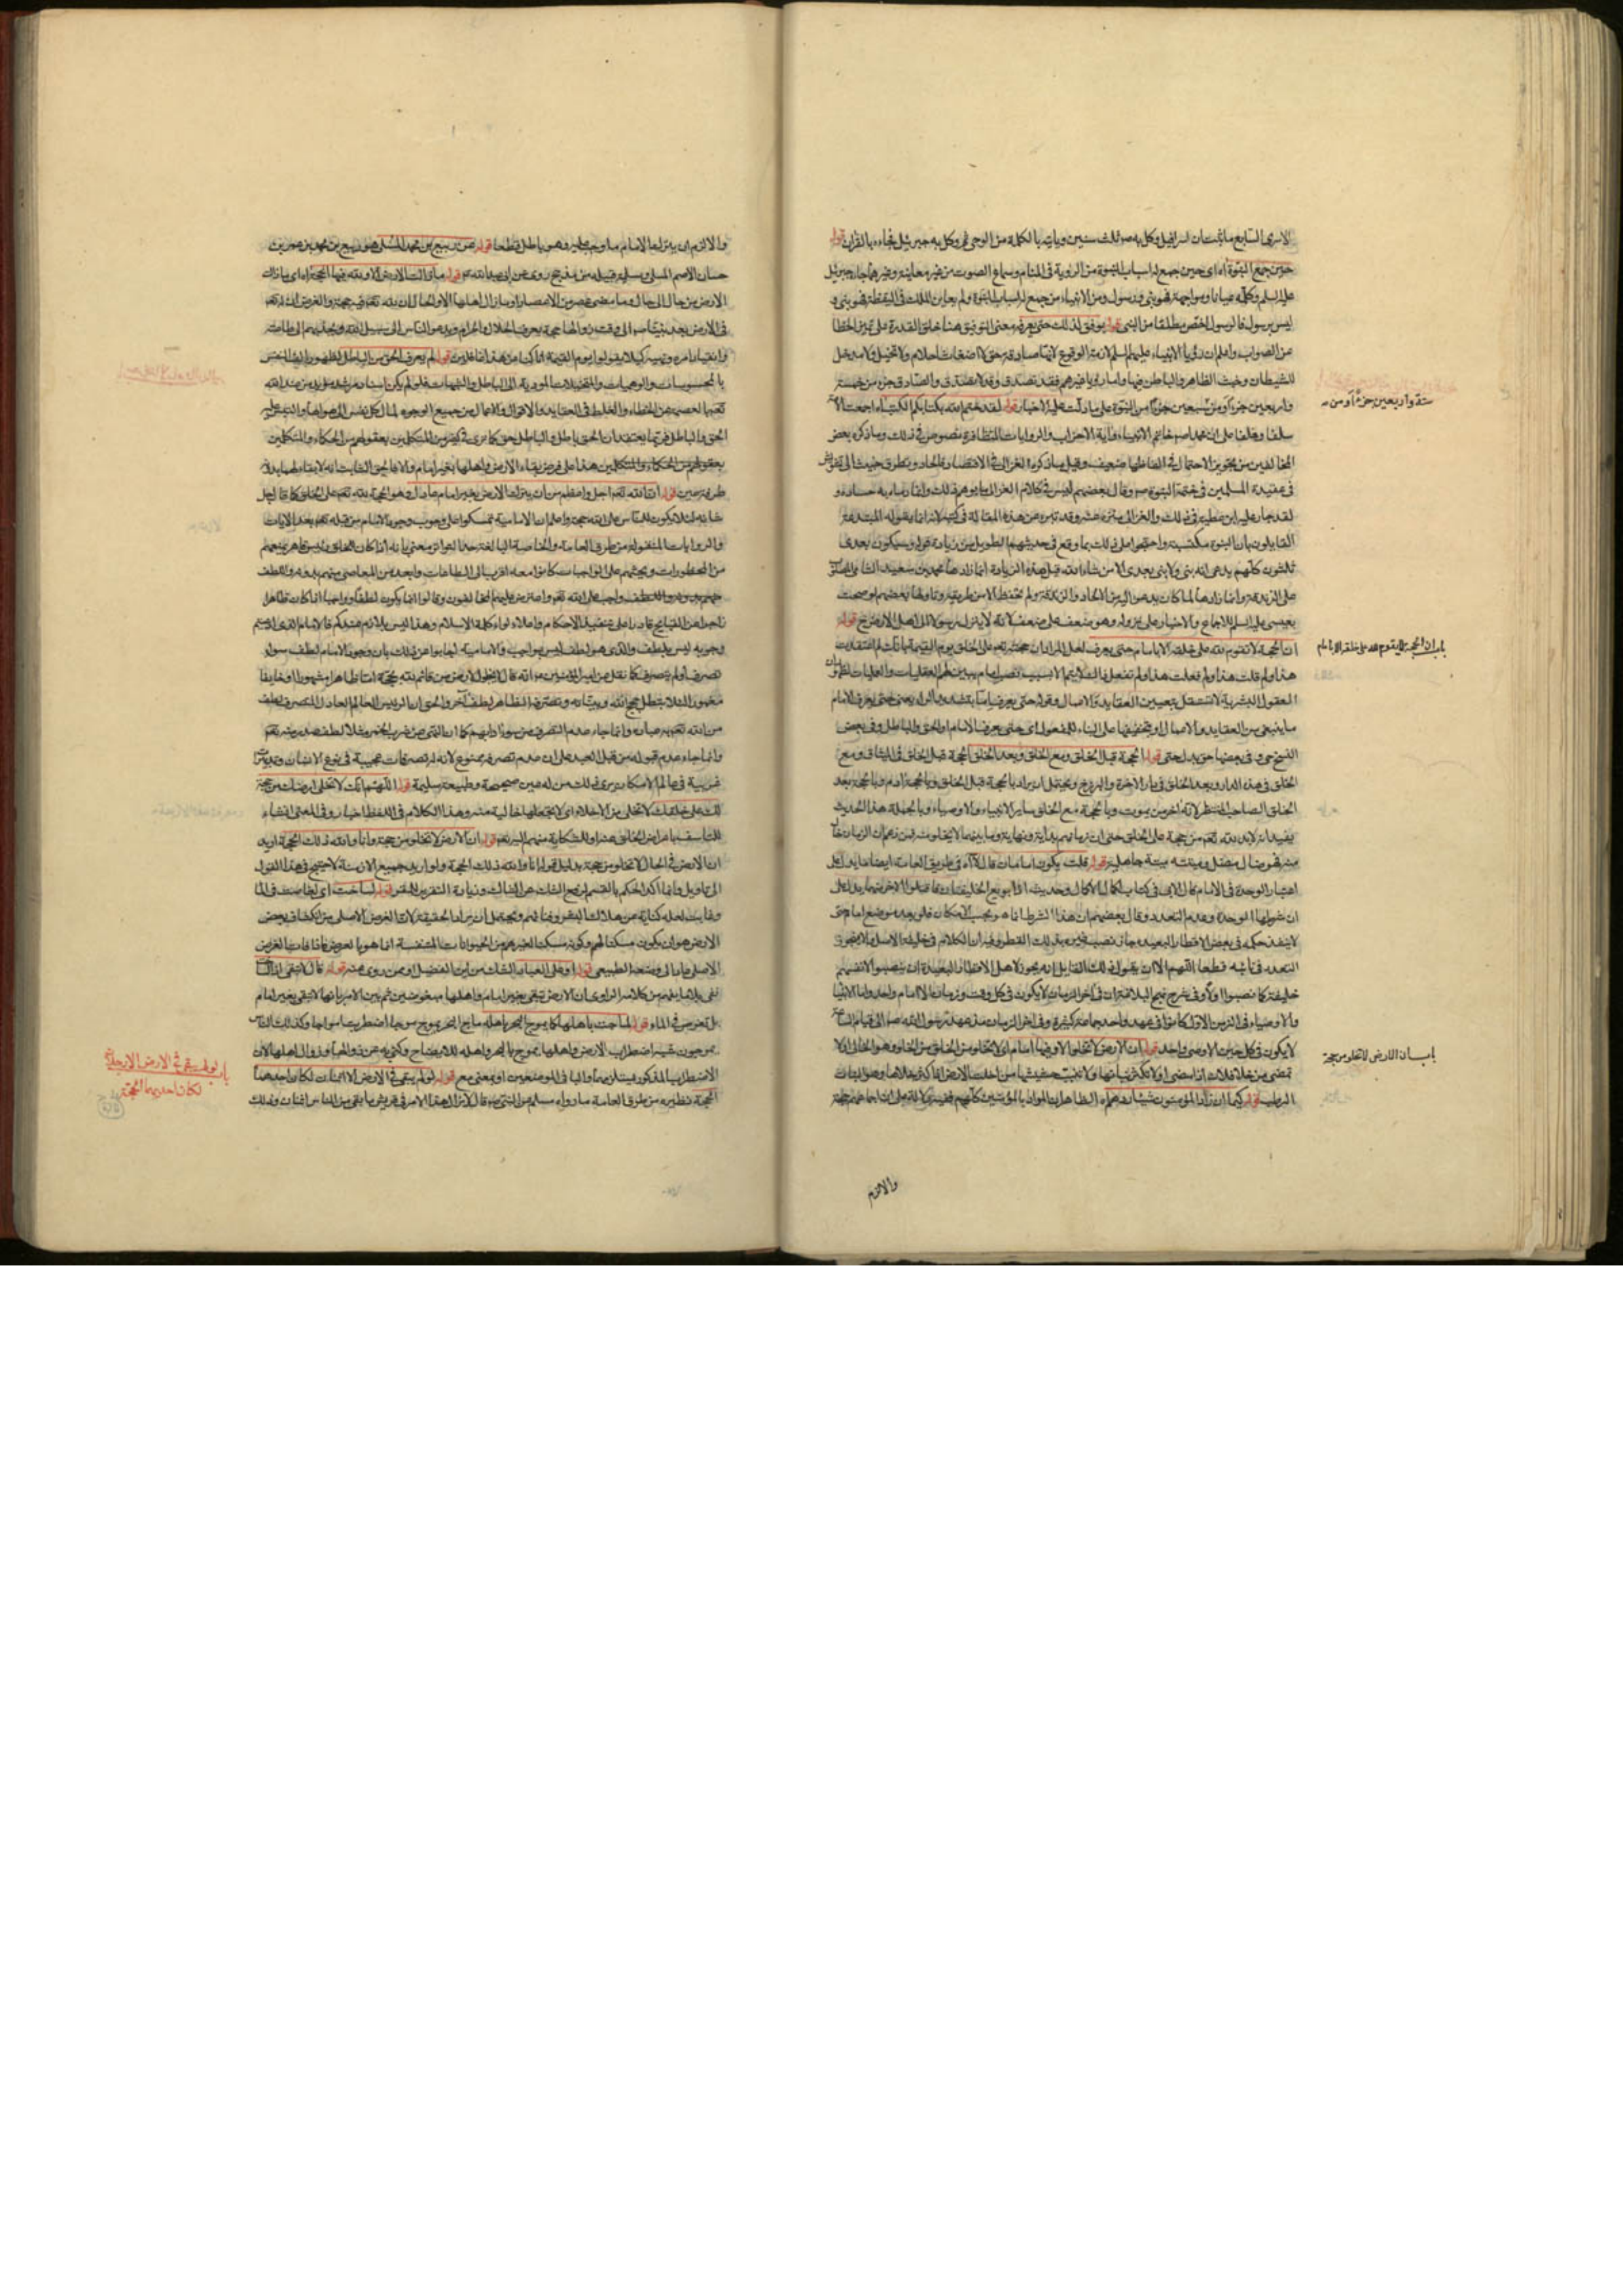 الاسرى السابع ما ثبت ان اسرافيل وكل به صلى ثلث سنين وياتيه بالكلمة من الوحى ثم وكل به جبرئيل فجاءه بالقران قوله
حين جمع النبوة اه اى حين جمع له اسباب النبوة من الروية فى المنام وسماع الصوت من غير معاينة وغيرهما جاءه جبرئيل
عليه السلم وكلمه عيانا ومواجهة فهو نبى ورسول ومن الانبياء من جمع له اسباب النبوة ولم يعاين الملك فى اليقظة فهو نبى و
ليس برسول فالرسول اخص مطلقا من النبى قوله يوفق لذلك حتى يعرفه معنى التوفيق هنا خلق القدرة على تميز الخطا
عن الصواب واعلم ان رؤيا الانبياء عليهم السلم لازمة الوقوع لانها صادقة حق لا اضغاث احلام ولا تخيل ولا مدخل
للشيطان وخبث الظاهر والباطن فيها واما رؤيا غيرهم فقد تصدق وقد لا تصدق والصادق جزء من خمسة
واربعين جزءا ومن سبعين جزءا من النبوة على ما دلت عليه الاخبار قوله لقد ختم الله بكتابكم الكتب اه اجمعت الامة
ستة واربعين جزءاً او من
سلفا وخلفا على ان محمدا صلى خاتم الانبياء واية الاحزاب والروايات المتظافرة نصوص فى ذلك وما ذكره بعض
المخالفين من تجويز الاحتمال فى الفاظها ضعيف وقيل ما ذكره الغزالى فى الاقتصاد فالحاد وتطرق خبيث الى تشويش
فى عقيدة المسلمين فى ختمة النبوة وقال بعضهم ليس فى كلام الغزالى ما يوهم ذلك وانما رماه به حساده و
لقد جار عليه ابن عطية فى ذلك والغزالى منزه عنه وقد تبرء من هذه المقالة فى كتبه لانه انما يقوله المبتدعة
القايلون بان النبوة مكتسبة واحتجوا على ذلك بما وقع فى حديثهم الطويل من زيادة قوله وسيكون بعدى
ثلثون كلهم يدعى انه نبى ولا نبى بعدى الا من شاء الله قيل هذه الزيادة انما زادها محمد بن سعيد الشامى المصلوب
على الزندقة وانما زادها لما كان يدعو اليه من الالحاد والزندقة ولم تحفظ الا من طريقه وتاولها بعضهم لو صحت
بعيسى عليه السلم للاجماع والاخبار على نزوله وهو ضعف على ضعف لانه لا ينزل رسولا الى اهل الارض ح قوله
ان الحجة لا تقوم لله على خلقه الا بامام حتى يعرف لعل المراد ان حجته تعم على الخلق يوم القيمة بانك لم اعتقدت
باب ان الحجة لا تقوم لله على خلقه الا بامام
هذا ولم قلت هذا ولم فعلت هذا ولم تفعل ذاك لا يتم الا بسبب نصب امام يبين لهم العقليات والعمليات لظهور ان
العقول البشرية لا تستقل بتعيين العقايد والاعمال وقوله حتى يعرف اما بتشديد الراء يعنى حتى يعرف الامام
ما ينبغى من العقايد والاعمال او بتخفيفها على البناء للمفعول اى حتى يعرف الامام او الحق والباطل وفى بعض
النسخ حى وفى بعضها حق بدل حتى قوله الحجة قبل الخلق ومع الخلق وبعد الخلق الحجة قبل الخلق فى الميثاق ومع
الخلق فى هذه الدار وبعد الخلق فى دار الاخرة والبرزخ ويحتمل ان يراد بالحجة قبل الخلق وبالحجة ادم وبالحجة بعد
الخلق الصاحب المنتظر لانه اخر من يموت وبالحجة مع الخلق ساير الانبياء والاوصياء وبالجملة هذا الحديث
يفيد انه لابد لله تعم من حجة على الخلق حتى ان زمانهم بداية ونهاية وما بينهما لا يخلو منه فمن زعم ان الزمان خال
منه فهو ضال مضل وميتته ميتة جاهلية قوله قلت يكون امامان قال لا اه فى طريق العامة ايضا ما يدل على
اعتبار الوحدة فى الامام قال الابى فى كتاب اكمال الاكمال وحديث اذا بويع الخليفتان فاقتلوا الاخر منهما يدل على
ان شرطها الوحدة وعدم التعدد وقال بعضهم ان هذا الشرط انما هو بحسب الامكان فلو بعد موضع امام حتى
لا ينفذ حكمه فى بعض الاقطار البعيدة جاز نصب غيره بذلك القطر وفيه ان الكلام فى خليفة الاصل ولا يجوز
التعدد فى نائبه قطعا اللهم الا ان يقول ذلك القايل انه يجوز لاهل الاقطار البعيدة ان ينصبوا لانفسهم
خليفة كما نصبوا اولا وفى شرح نهج البلاغة ان فى اخر الزمان لا يكون فى كل وقت وزمان الا امام واحد واما الانبيا
والاوصياء فى الزمن الاول كانوا فى عهد واحد جماعة كثيرة وفى اخر الزمان منذ عهد رسول الله صلى الى قيام الساعة
لا يكون فى كل حين الا وصى واحد قوله ان الارض لا تخلو الا وفيها امام اى لا تخلو من الخلق من الخلو وهو الخالى او لا
باب ان الارض لا تخلو من حجة
تمضى من خلا فلان اذا مضى او لا تكثر نباتها ولا تنبت حشيشها من اخلت الارض اذا كثر خلاها وهو النبات
الرطب قوله كيما ان زاد المؤمنون شيئا ردهم اه الظاهر ان المراد بالمؤمنين كلهم ففيه دلالة على ان اجماعهم حجة
والالزم
والالزم ان يترك الامام ما وجب عليه وهو باطل قطعا قوله عن ربيع بن محمد المسلى هو ربيع بن محمد بن عمر بن
حسان الاصم المسلى ومسلية قبيلة من مذحج روى عن ابى عبد الله ع قوله ما زالت الارض الا ولله فيها الحجة اه اى ما زالت
الارض من حال الى حال وما مضى عصر من الاعصار او ما زال اهلها الا والحال ان لله تعم فيه حجة والغرض انه لله تعم
فى الارض بعد نبينا صلى الى وقت زوالها حجة يعرف الحلال والحرام ويدعو الناس الى سبيل الله ويجذبهم الى طاعته
وانقياد امره ونهيه كيلا يقولوا يوم القيمة انا كنا عن هذا غافلين قوله لم يعرف الحق من الباطل لظهور الف النفس
بالمحسوسات والوهميات والمتخيلات المودية الى الباطل والشبهات فلو لم يكن استاد مرشد مؤيد من عند الله
تعم بالعصمة عن الخطاء والغلط فى العقايد والاقوال والاعمال من جميع الوجوه لمال كل نفس الى هواها والتبس عليه
الحق والباطل فربما يعتقد ان الحق باطل والباطل حق كما ترى فى كثير من المتكلمين بعقولهم من الحكماء والمتكلمين
بعقولهم من الحكماء والمتكلمين هذا على فرض بقاء الارض واهلها بغير امام والا فالحق الثابت انه لا بقاء لها بدونه
طرفة عين قوله ان الله تعم اجل واعظم من ان يترك الارض بغير امام عادل وهو الحجة لله تعم على الخلق كما قال جل
شانه لئلا يكون للناس على الله حجة واعلم ان الامامية تمسكوا على وجوب وجود الامام من قبله تعم بعد الايات
والروايات المنقولة من طرق العامة والخاصة البالغة حد التواتر معنى بانه اذا كان للخلق رئيس قاهر يمنعهم
من المحظورات ويحثهم على الواجبات كانوا معه اقرب الى الطاعات وابعد عن المعاصى منهم بدونه واللطف
واجب على الله تعم واعترض عليهم المخالفون وقالوا انما يكون لطفا وواجبا اذا كان ظاهرا
زاجرا عن القبايح قادرا على تنفيذ الاحكام واعلاء لواء كلمة الاسلام وهذا ليس بلازم عندكم فالامام الذى ادعيتم
وجوبه ليس بلطف والذى هو لطف ليس بواجب والامامية اجابوا عن ذلك بان وجود الامام لطف سواء
تصرف او لم يتصرف كما نقل عن امير المؤمنين ع انه قال لا تخلو الارض من قائم لله بحجة اما ظاهرا مشهورا او خايفا
مغمورا لئلا تبطل حجج الله وبيناته وتصرفه الظاهر لطف اخر والحق ان الرئيس العالم العادل المتصرف لطف
من الله تعم
وانما جاء عدم قبوله من قبل العبد على ان عدم تصرفه ممنوع لانه له تصرفات عجيبة فى نوع الانسان وتدبيرات
غريبة فى عالم الامكان يرى ذلك من له عين صحيحة وطبيعة سليمة قوله اللهم انك لا تخلى ارضك من حجة
لك على خلقك لا تخلى من الاخلاء اى لا تجعلها خالية منه وهذا الكلام فى اللفظ اخبار وفى المعنى انشاء
للتاسف باعراض الخلق عنه او للشكاية منهم اليه تعم قوله ان الارض لا تخلو من حجة وانا والله ذلك الحجة اريد
ان الارض فى الحال لا تخلو من حجة بدليل قوله انا والله ذلك الحجة ولو اريد جميع الازمنة لاحتيج فى هذا القول
الى تاويل وانما اكد الحكم بالقسم لرفع الشك عن الشاك وزيادة التقرير للمقر قوله لساخت اى لغاصت فى الماء
وغابت لعله كناية عن هلاك البشر وفنائهم ويحتمل ان يراد الحقيقة لان الغرض الاصلى من انكشاف بعض
الارض هو ان يكون مسكنا لهم وكونه مسكنا لغيرهم من الحيوانات المتنفسة انما هو بالعرض فاذا فات الغرض
الاصلى عاد الى وضعه الطبيعى قوله او على العباد الشك من ابن الفضيل او ممن روى عنه قوله قال لا تبقى اذا لساخت
نفى لما يفهم من كلام الراوى ان الارض تبقى بغير امام واهلها مغضوبين فبين الامر بانها لا تبقى بغير امام
بل تغوص فى الماء قوله لماجت باهلها كما يموج البحر باهله ماج البحر يموج موجا اضطربت امواجه وكذلك الناس
يموجون شبه اضطراب الارض واهلها بموج البحر واهله للايضاح وكنى به عن زوالها وزوال اهلها لان
الاضطراب المذكور يستلزمهما والباء فى الموضعين او بمعنى مع قوله لو لم يبق فى الارض الا اثنان لكان احدهما
باب انه لو لم يبق فى الارض الا رجلان
لكان احدهما الحجة
الحجة نظيره من طرق العامة ما رواه مسلم عن النبى ص قال لا يزال هذا الامر فى قريش ما بقى من الناس اثنان وذلك